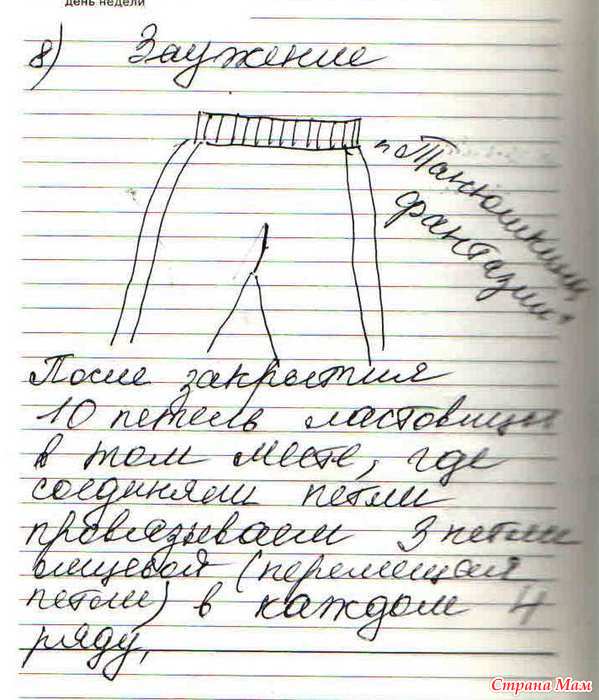 день недели
8) Заужение
"Танюшкины
фантазии"
После закрытия
10 петель ластовицы
в том месте, где
соединяем петли
провязываем 3 петли
лицевой (перемещая
петли) в каждом 4
ряду,
Страна Мам